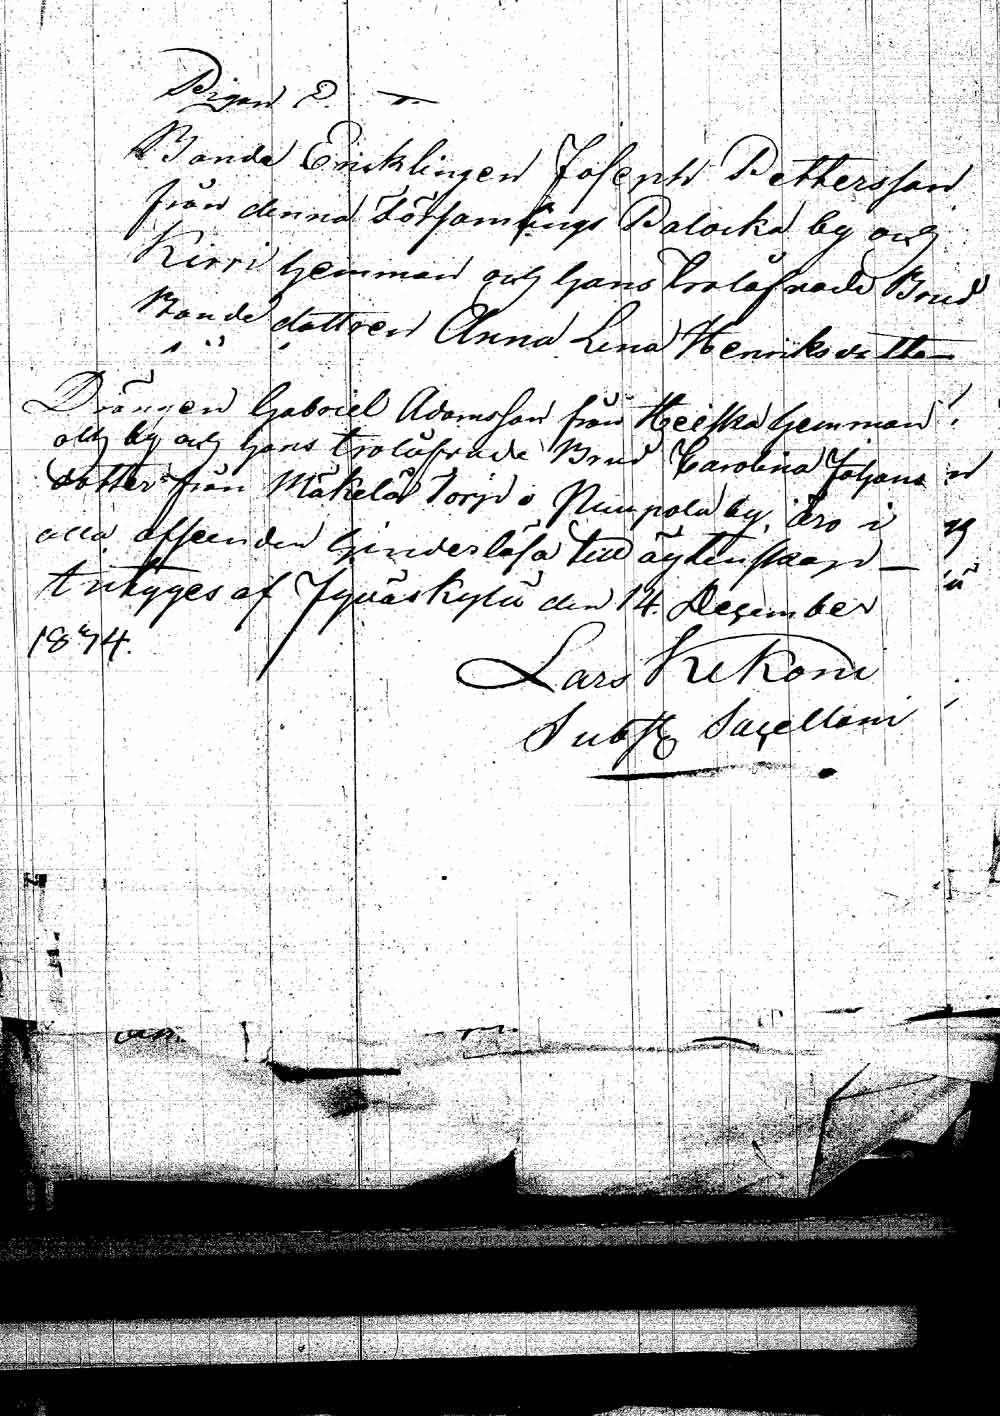 Pigan E.
Bonde Enklingen Joseph Pettersson
från denna Församlings Palocka by och
Kirri hemman och hans trolåfvade Brud
Bonde dottren Anna Lena Henriksdotter
Drängen Gabriel Adamsson från Heiska hemman
och by och hans trolåfvade Brud Carolina Johans
dotter från Mäkelä Torp o Puupola by, äro i
alla afseenden hinderlåsa till äghtenskap
intygges af Jyväskylä den 14 December
1874.
Lars Kekoni
Subst Sacellani